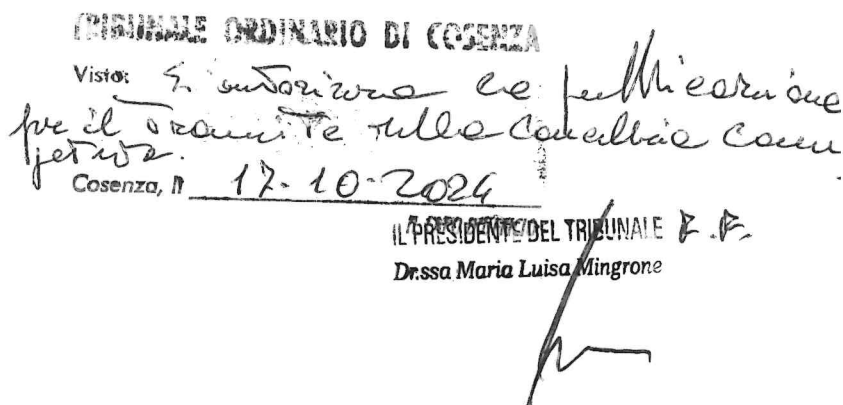 TRIBUNALE ORDINARIO DI COSENZA
Visto: Si autorizza la pubblicazione
per il tramite della Cancelleria Com
petente.
Cosenza, lì 17-10-2024
IL PRESIDENTE DEL TRIBUNALE F.F.
Dr.ssa Maria Luisa Mingrone